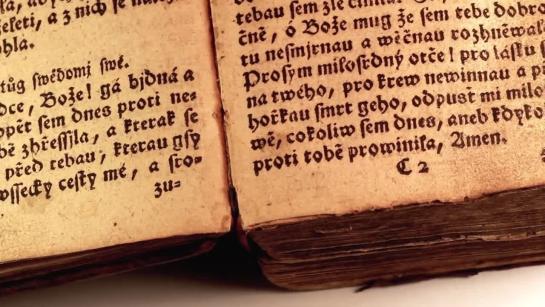 želeti, a z nich se
ohla.
tůg swědomj swé.
dce, Bože! gá bjdná a
opět sem dnes proti ne-
bě zhřessila, a kterak se
před tebau, kterau gsy
wssecky cesty mé, a sro-
zu-
tebau sem zle
čně, ó Bože mug že sem tebe dobro
tu nesmjrnau a wěčnau rozhněwala
Prosym milostdný otče! pro lásku
na twého, pro krew newinnau a
hořkau smrt geho, odpusť mi milo
wě, cokoliw sem dnes, aneb kdyko
proti tobě prowinila, Amen.
C 2